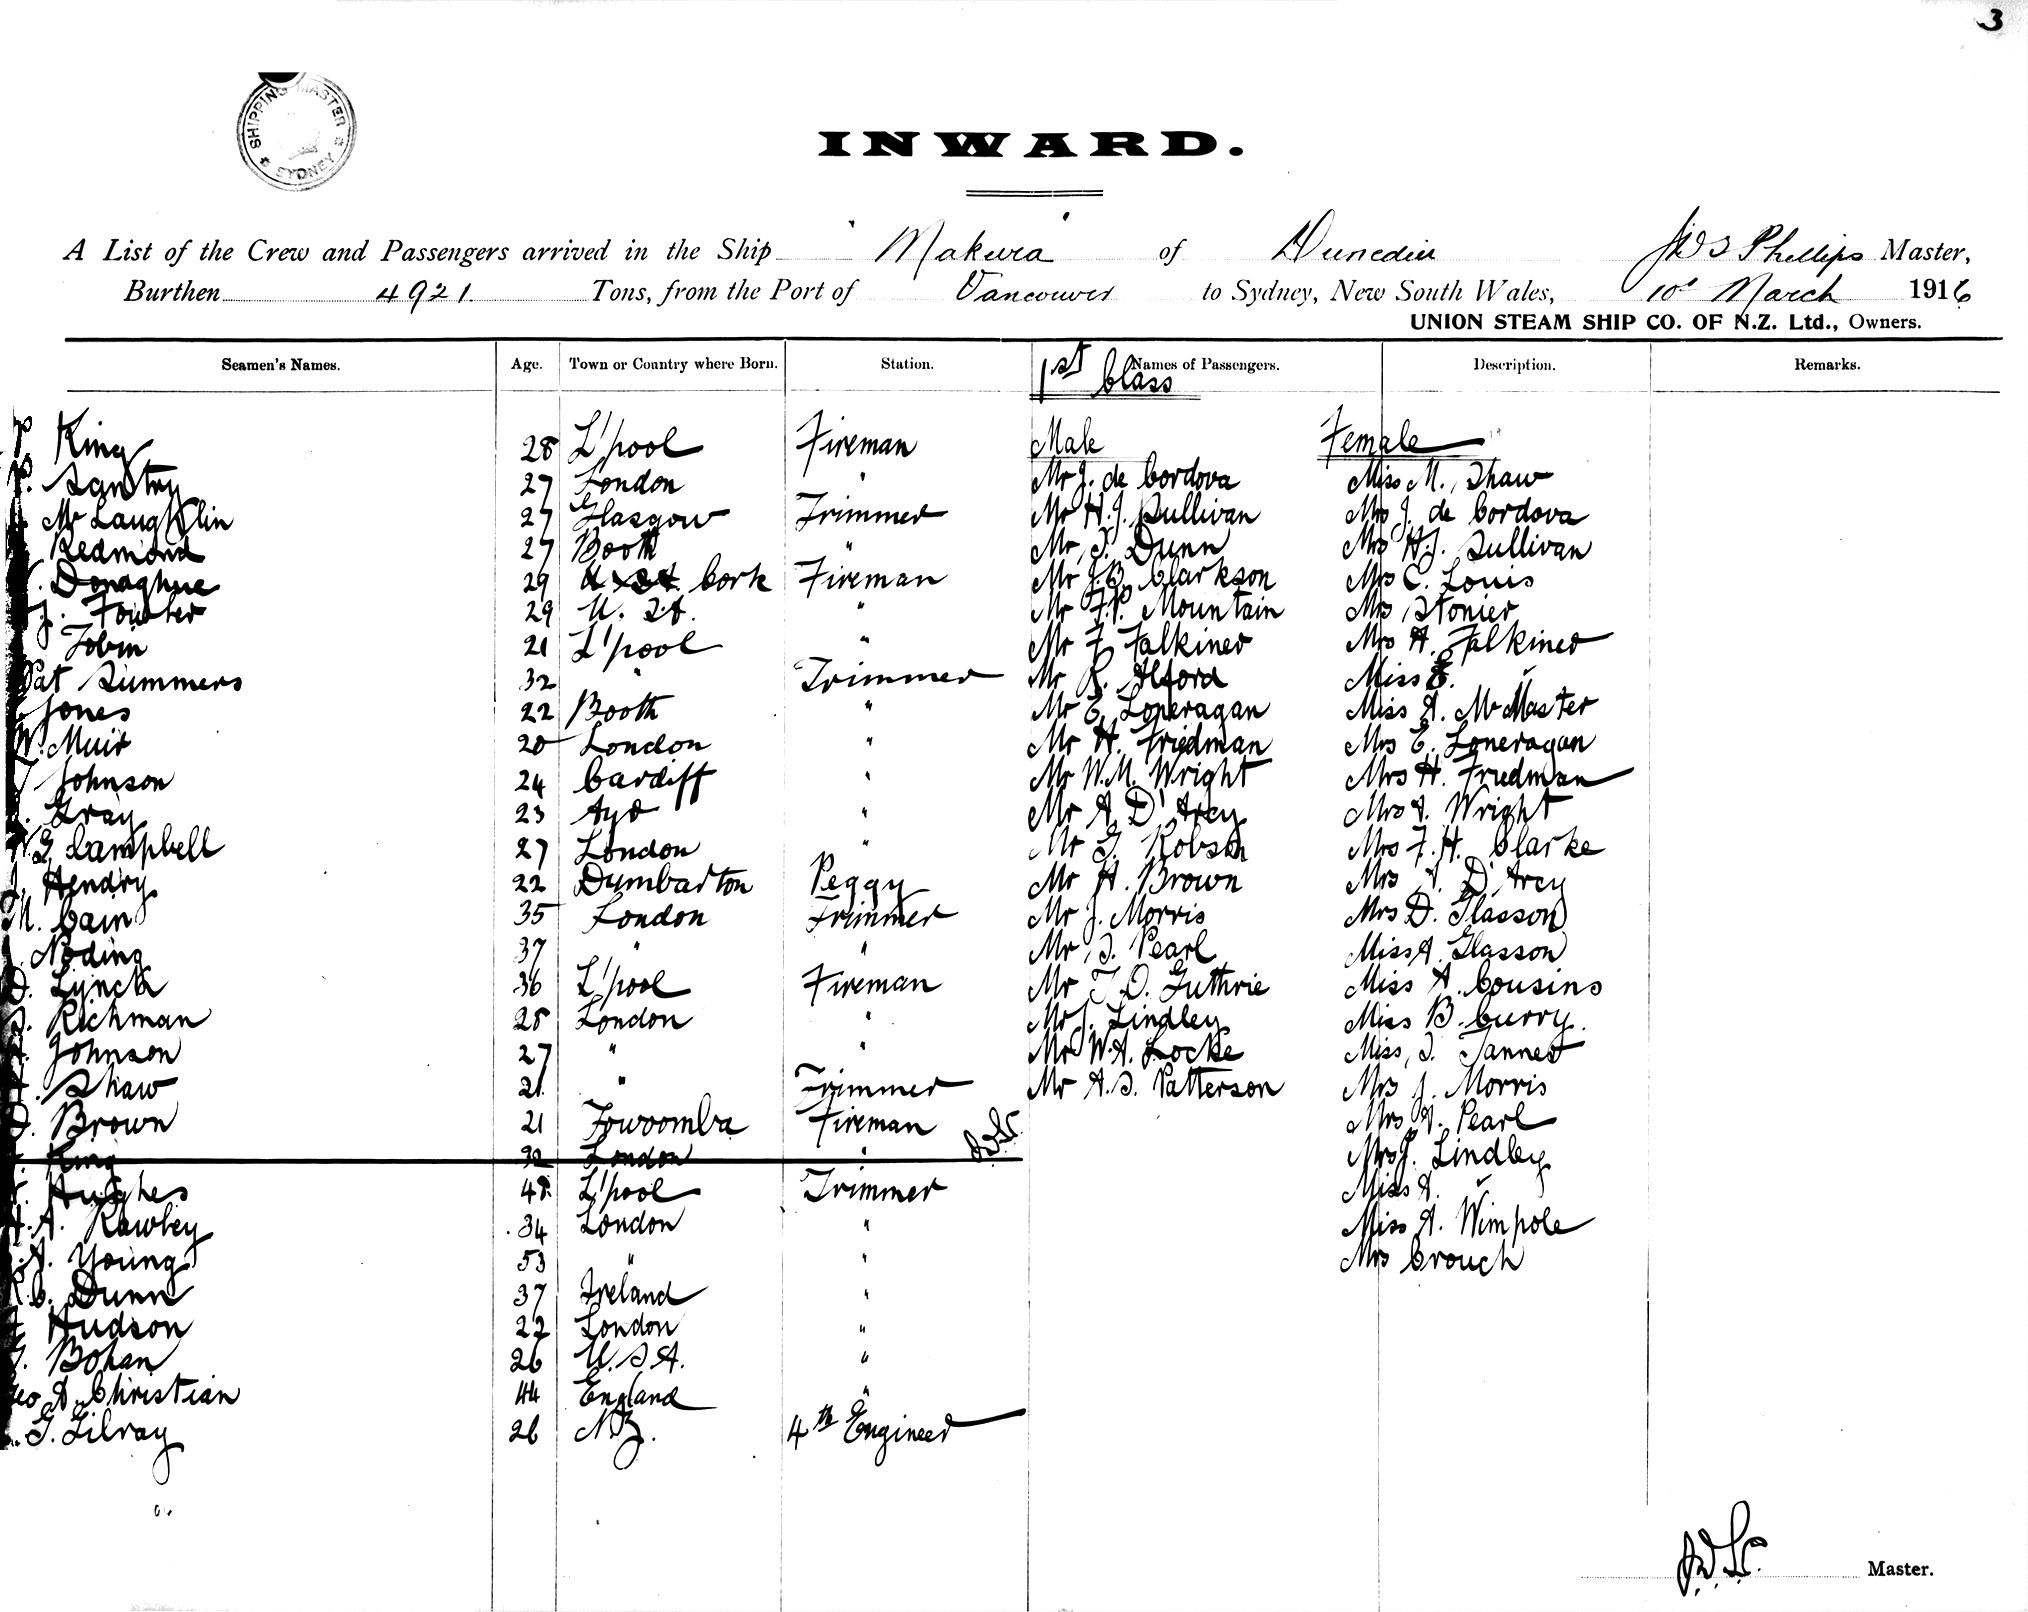 3
SHIPPING MASTER
SYDNEY
INWARD.
A List of the Crew and Passengers arrived in the Ship "Makura" of Dunedin JDS Phillips Master,
Burthen 4921. Tons, from the Port of Vancouver to Sydney, New South Wales, 10th March 1916
UNION STEAM SHIP CO. OF N.Z. Ltd., Owners.
Seamen's Names. Age. Town or Country where Born. Station. Names of Passengers. Description. Remarks.
1st Class
King 28 L'pool Fireman Male Female
Santry 27 London " Mr J. de Cordova Miss M. Shaw
McLaughlin 27 Glasgow Trimmer Mr H.J. Sullivan Mrs J. de Cordova
Redmond 27 Booth " Mr S. Dunn Mrs H.J. Sullivan
Donaghue 29 Cork Fireman Mr J.B. Clarkson Mrs C. Louis
J. Fowler 29 U.S.A. " Mr F.P. Mountain Mrs Stonier
Tobin 21 L'pool " Mr F. Falkiner Mrs A. Falkiner
Pat Summers 32 " Trimmer Mr R. Alford Miss E. "
Jones 22 Booth " Mr E. Loneragan Miss A. McMaster
W. Muir 20 London " Mr H. Friedman Mrs E. Loneragan
Johnson 24 Cardiff " Mr W.M. Wright Mrs H. Friedman
Gray 23 Ayr " Mr A D'Arcy Mrs A. Wright
W.G Campbell 27 London " Mr G. Robson Mrs F.H. Clarke
J. Hendry 22 Dumbarton Peggy Mr H. Brown Mrs A. D'Arcy
M. Cain 35 London Trimmer Mr J. Morris Mrs D. Glasson
Noding 37 " " Mr S. Pearl Miss A. Glasson
D. Lynch 36 L'pool Fireman Mr T.D. Guthrie Miss A. Cousins
S. Richman 28 London " Mr J. Lindley Miss B. Curry.
A. Johnson 27 " " Mr W.A. Locke Miss S. Tanner
A. Shaw 21 " Trimmer Mr A.S. Patterson Mrs J. Morris
D. Brown 21 Towoomba Fireman Mrs A. Pearl
King 32 London " Mrs J. Lindley
Hughes 48 L'pool Trimmer Miss A. "
A.A. Rawley 34 London " Miss A. Wimpole
A. Young 53 " " Mrs Crouch
C. Dunn 37 Ireland "
Hudson 22 London "
J. Bohan 26 U.S.A. "
Geo A. Christian 44 England "
G. Gilray 26 N.Z. 4th Engineer
Master.